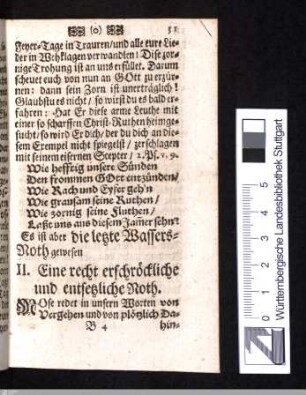 (o) 51
Feyer-Tage in Trauren/und alle eure Lie-
der in Wehklagen verwandlen! Dise zor-
nige Trohung ist an uns erfüllet. Darum
scheuet euch von nun an GOtt zu erzür-
nen: dann sein Zorn ist unerträglich!
Glaubstu es nicht/ so wirst du es bald er-
fahren: Hat Er diese arme Leuthe mit
einer so scharffen Christ-Ruthen heimge-
sucht/so wird Er dich/ der du dich an die-
sem Exempel nicht spiegelst/ zerschlagen
mit seinem eisernen Scepter/ 2. Ps. v. 9.
Wie hefftig unsere Sünden
Den frommen GOtt entzünden/
Wie Rach und Eyfer geh'n
Wie grausam seine Ruthen/
Wie zornig seine Fluthen/
Laßt uns aus diesem Jamer sehn!
Es ist aber die letzte Wassers-
Noth gewesen
II. Eine recht erschröckliche
und entsetzliche Noth.
MOse redet in unsern Worten von
Vergehen und von plötzlich Da-
B 4 hin-
Württembergische Landesbibliothek Stuttgart
0